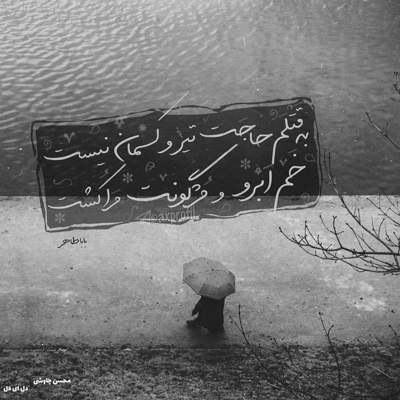 به قتلم حاجت تیر و کمان نیست
خم ابرو و مژگونت مرا کشت
باباطاهر
محسن چاوشی
دل ای دل